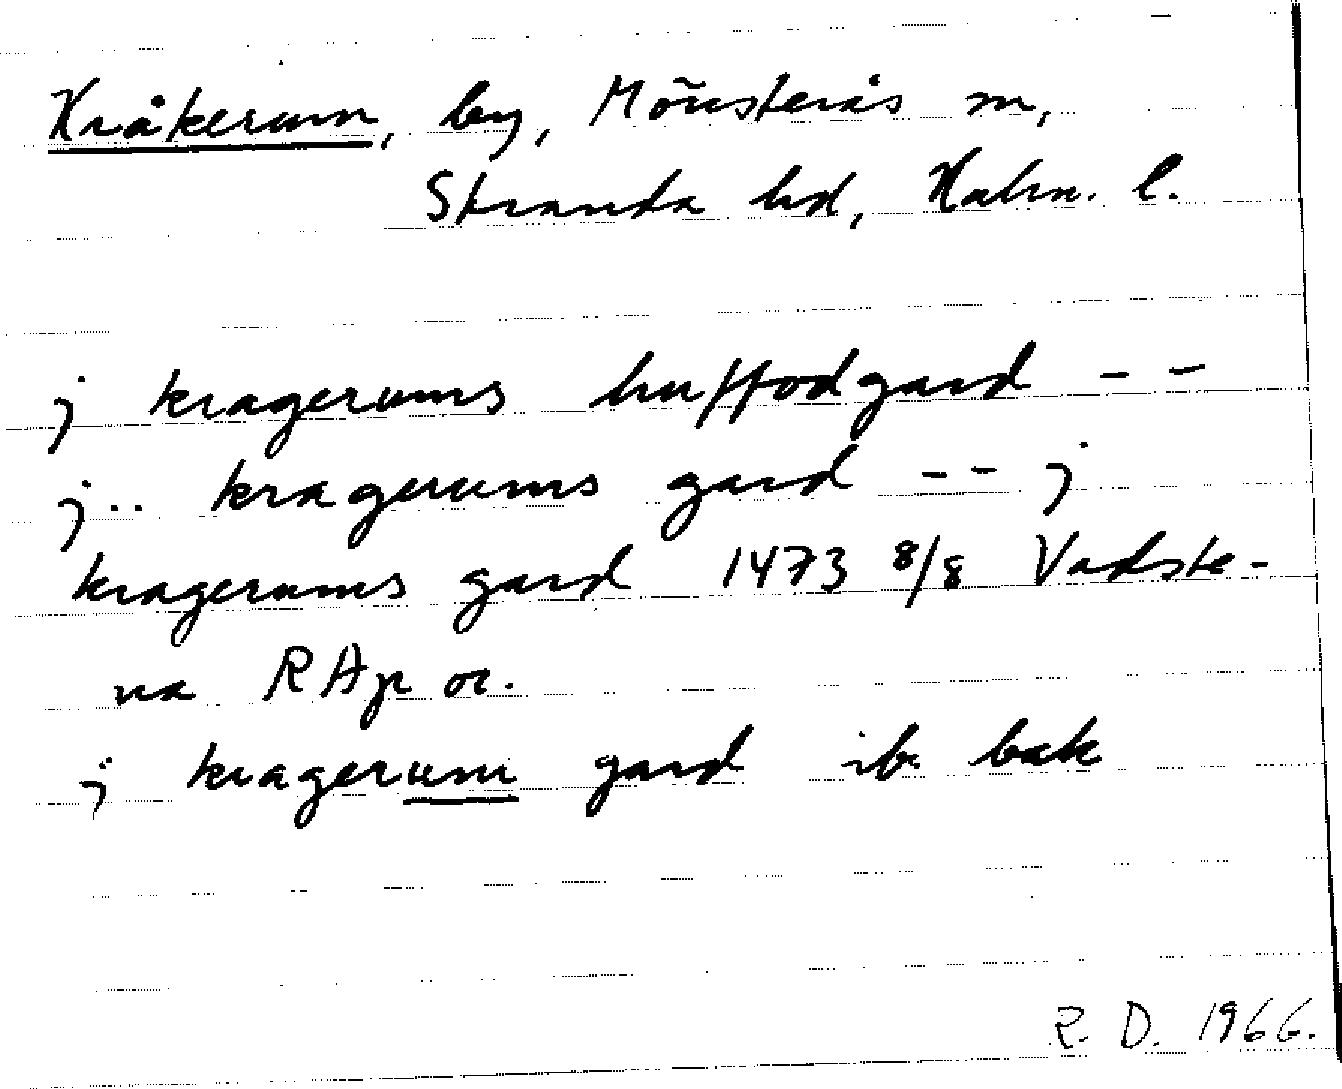 Kråkerum, by, Mönsterås sn,
Stranda hd, Kalm. l.
j kragerums huffodgard - -
j .. kragerums gard - - j
kragerums gard 1473 8/8 Vadste-
na RAp or.
j kragerum gard ib. bak
R. D. 1966.